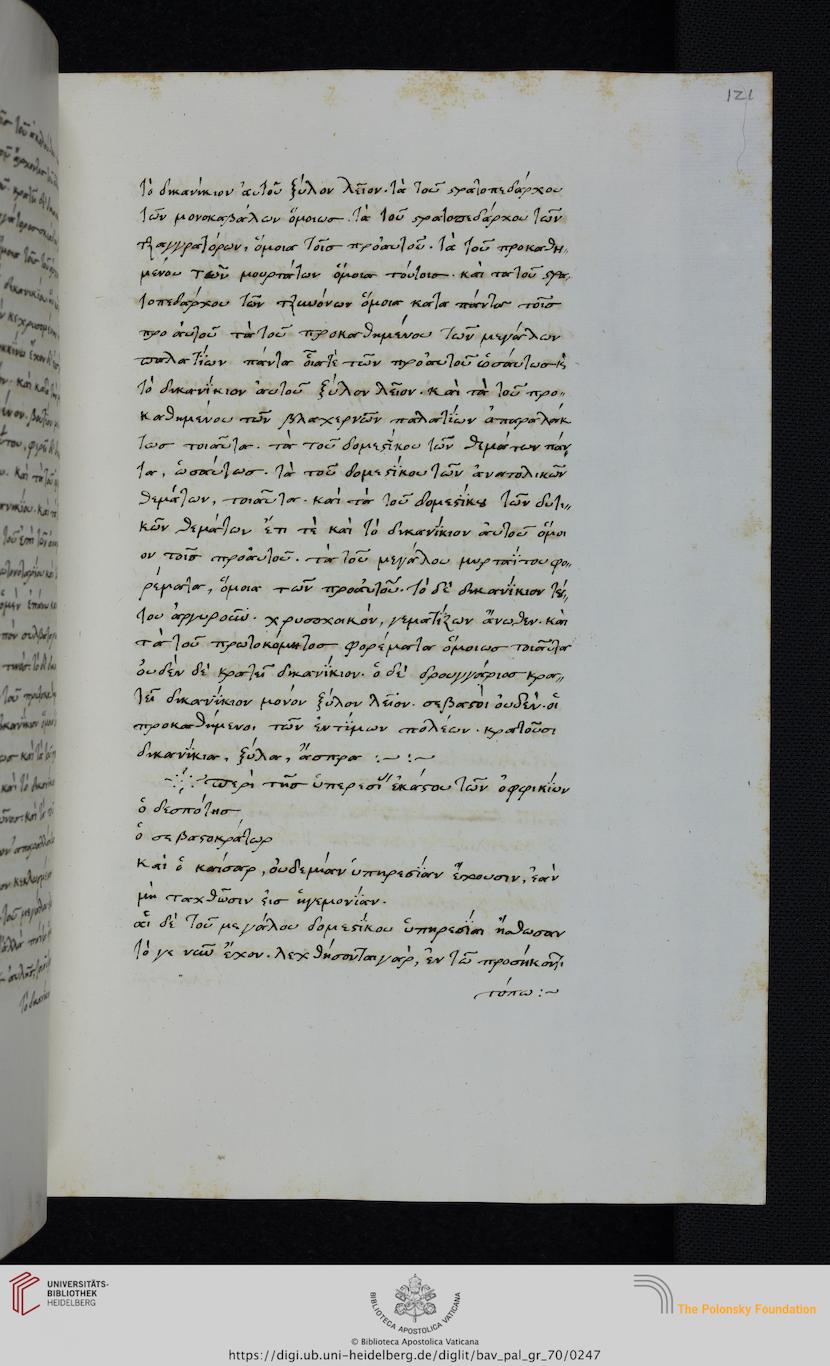 121
τὸ δικανίκιον ἀυτοῦ ξύλον λεῖον· τὰ τοῦ στρατοπεδάρχου
τῶν μονοκαβάλων ὅμοιωσ· τὰ τοῦ στρατοπεδάρχου τῶν
τζαγγρατόρων, ὅμοια τοῖσ προἀυτοῦ· τὰ τοῦ προκαθη„
μένου τῶν μουρτάτων ὅμοια τούτοισ· καὶ τα τοῦ στρα„
τοπεδάρχου τῶν τζακώνων ὅμοια κατα πάντα τοῖσ
προ ἀυτοῦ τὰ τοῦ προκαθημένου τῶν μεγάλων
παλατίων πάντα οἷατε τῶν προἀυτοῦ ὡσάυτωσ κ
τὸ δικανίκιον ἀυτοῦ ξύλον λεῖον· καὶ τὰ τοῦ προ„
καθημένου τῶν βλαχερνῶν παλατίων ἀπαραλάκ
τωσ τοιαῦτα· τὰ τοῦ δομεστίκου τῶν θεμάτων πάν
τα, ὡσάυτωσ· τὰ τοῦ δομεστίκου τῶν ἀνατολικῶν
θεμάτων, τοιαῦτα· καὶ τὰ τοῦ δομεστίκου τῶν δυτι„
κῶν θεμάτων ἔτι τὲ καὶ τὸ δικανίκιον ἀυτοῦ ὅμοι
ον τοῖσ προἀυτοῦ· τὰ τοῦ μεγάλου μυρταΐτου φο„
ρέματα, ὅμοια τῶν προἀυτοῦ· τὸ δὲ δικανίκιον τού„
του ἀργυροῦν· χρυσοχοικόν, γεματίζων ἄνωθεν· καὶ
τὰ τοῦ πρωτοκόμητοσ φορέματα ὅμοιωσ τοιαῦτα
ὀυδὲν δὲ κρατεῖ δικανίκιον· ὁ δὲ δρουγγάριοσ κρα„
τεῖ δικανίκιον μονόν ξύλον λεῖον· σεβαστοὶ ὀυδὲν· οἱ
προκαθήμενοι τῶν ἐντίμων πόλέων· κρατοῦσι
δικανίκια, ξύλα, ἄσπρα :~ :~
περὶ τῆσ ὑπερεσί ἑκάστου τῶν ὀφφικίων
ὁ δεσπότησ
ὁ σεβαστοκράτωρ
καὶ ὁ καίσαρ, ὀυδεμίαν ὑπηρεσίαν ἔχουσιν, ἐὰν
μὴ ταχθῶσιν ἐισ ἡγεμονίαν·
αἱ δὲ τοῦ μεγάλου δομεστίκου ὑπηρεσίαι ἤαθωσαν
τό γε νῦν ἔχον· λεχθήσονται γὰρ, ἐν τῶ προσήκοντι
τόπω :~
UNIVERSITÄTS-
BIBLIOTHEK
HEIDELBERG
BIBLIOTECA APOSTOLICA VATICANA
The Polonsky Foundation
© Biblioteca Apostolica Vaticana
https://digi.ub.uni-heidelberg.de/diglit/bav_pal_gr_70/0247